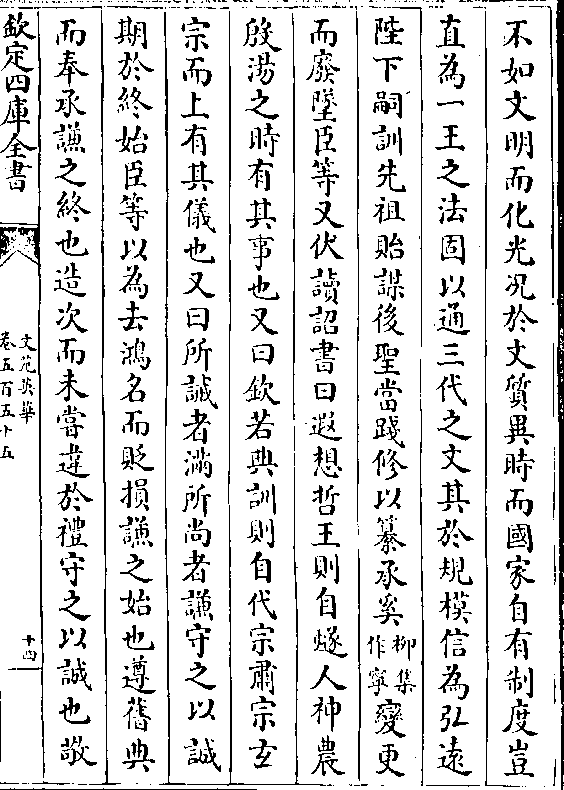 不如文明而化光况於文質異時而國家自有制度豈
直為一王之法固以通三代之文其於規模信為弘遠
陛下嗣訓先祖貽謀後聖當踐修以纂承奚柳集作寧變更
而廢墜臣等又伏讀詔書曰遐想哲王則自燧人神農
殷湯之時有其事也又曰欽若典訓則自代宗肅宗玄
宗而上有其儀也又曰所誡者滿所尚者謙守之以誠
期於終始臣等以為去鴻名而貶損謙之始也遵舊典
而奉承謙之終也造次而未嘗違於禮守之以誠也敬
欽定四庫全書
文苑英華
卷五百五十五
十四